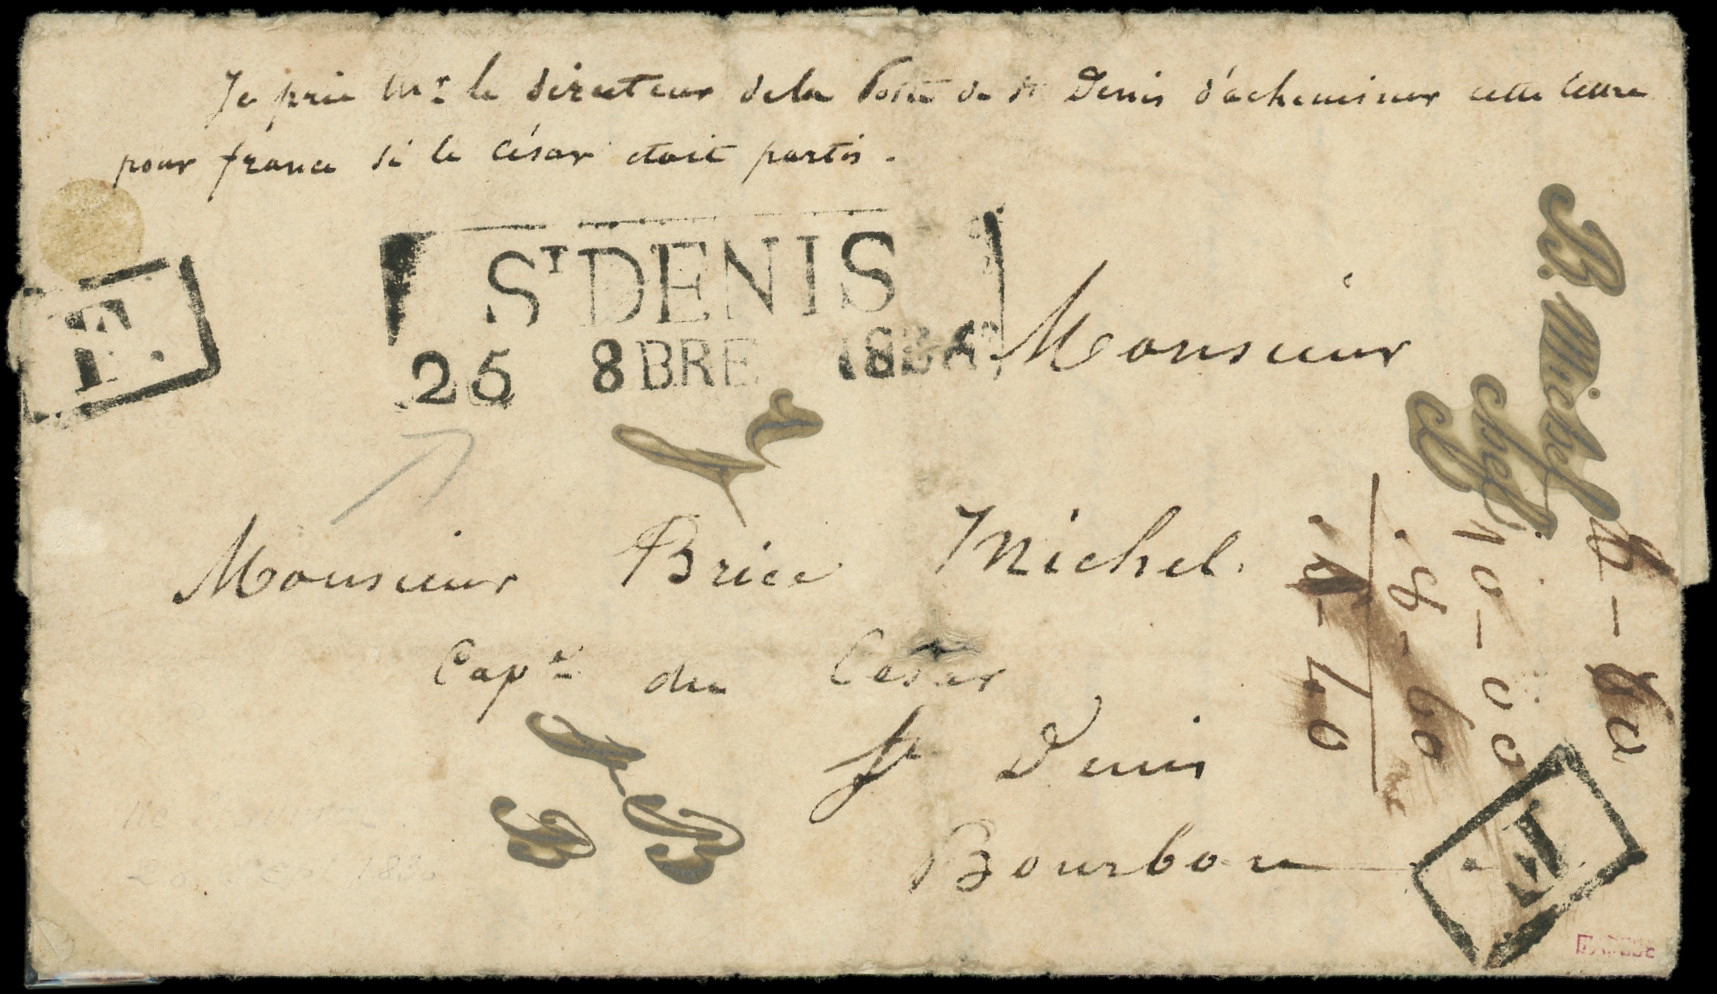 Je prie Mr le directeur de la Poste de St Denis d'acheminer cette lettre
pour france si le César etait partis.
ST DENIS
25 8BRE
F.
Monsieur
Monsieur Brice Michel.
Capne du César
St Denis
Bourbon
F.
B. Michel
10-00
8-60